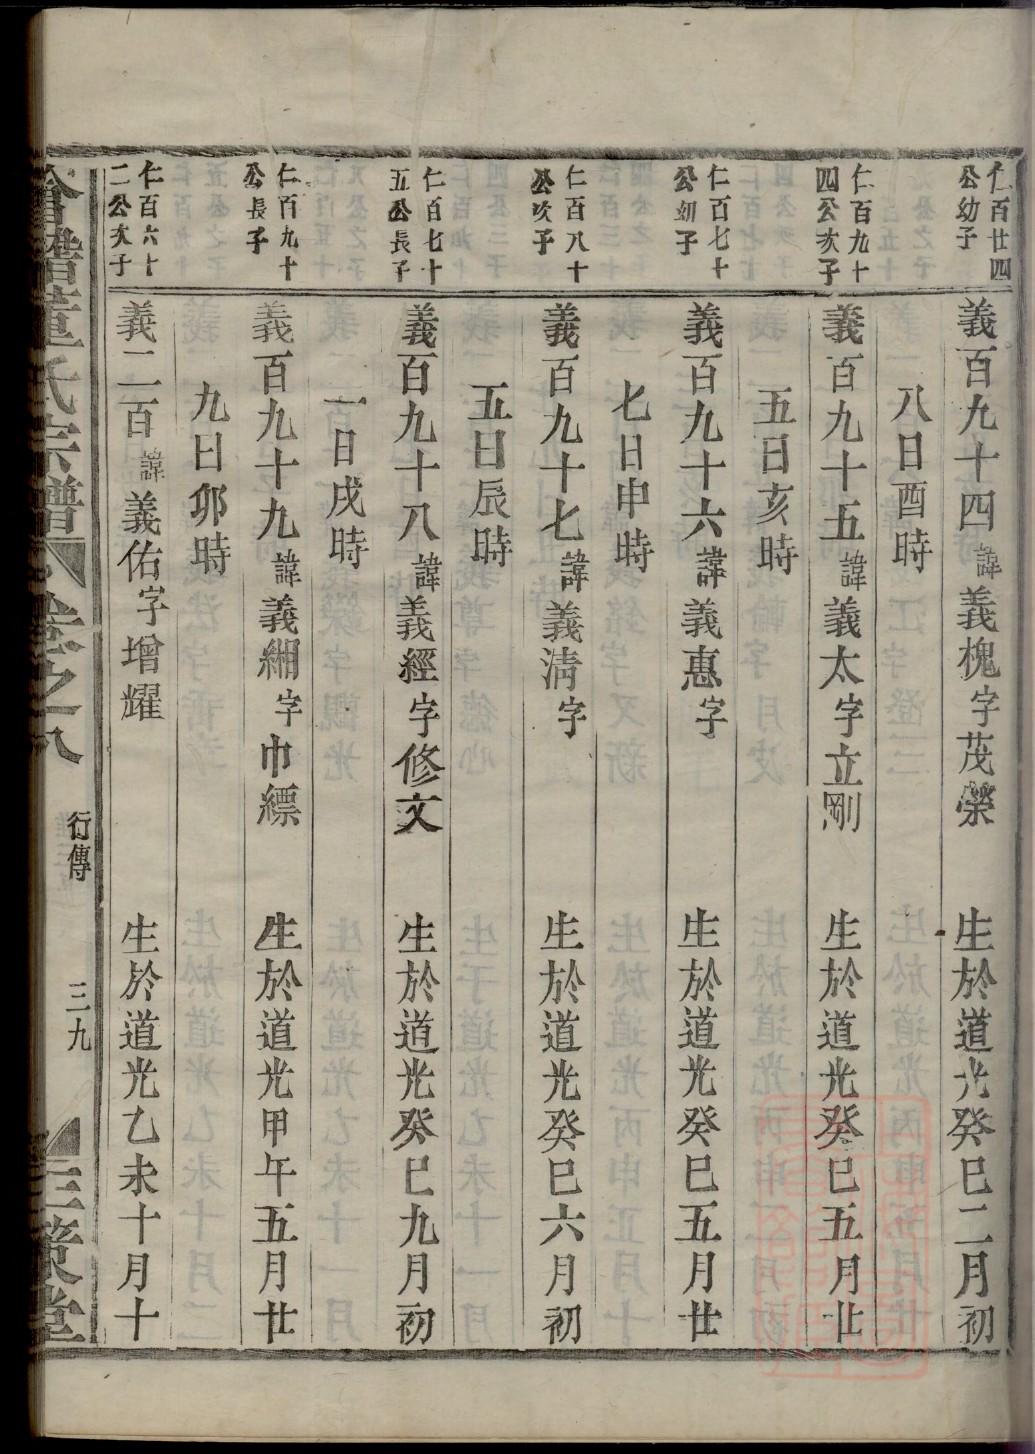 仁百廿四
公幼子
義百九十四諱義槐字茂榮 生於道光癸巳二月初
八日酉時
仁百九十
四公次子
義百九十五諱義太字立剛 生於道光癸巳五月廿
五日亥時
仁百七十
公嗣子
義百九十六諱義惠字 生於道光癸巳五月廿
七日申時
仁百八十
公次子
義百九十七諱義淸字 生於道光癸巳六月初
五日辰時
仁百七十
五公長子
義百九十八諱義經字修文 生於道光癸巳九月初
一日戌時
仁百九十
公長子
義百九十九諱義緗字巾縹 生於道光甲午五月廿
九日卯時
仁百六十
二公次子
義二百諱義佑字增耀 生於道光乙未十月十
合譜董氏宗譜 卷之八 行傳 三九 三策堂